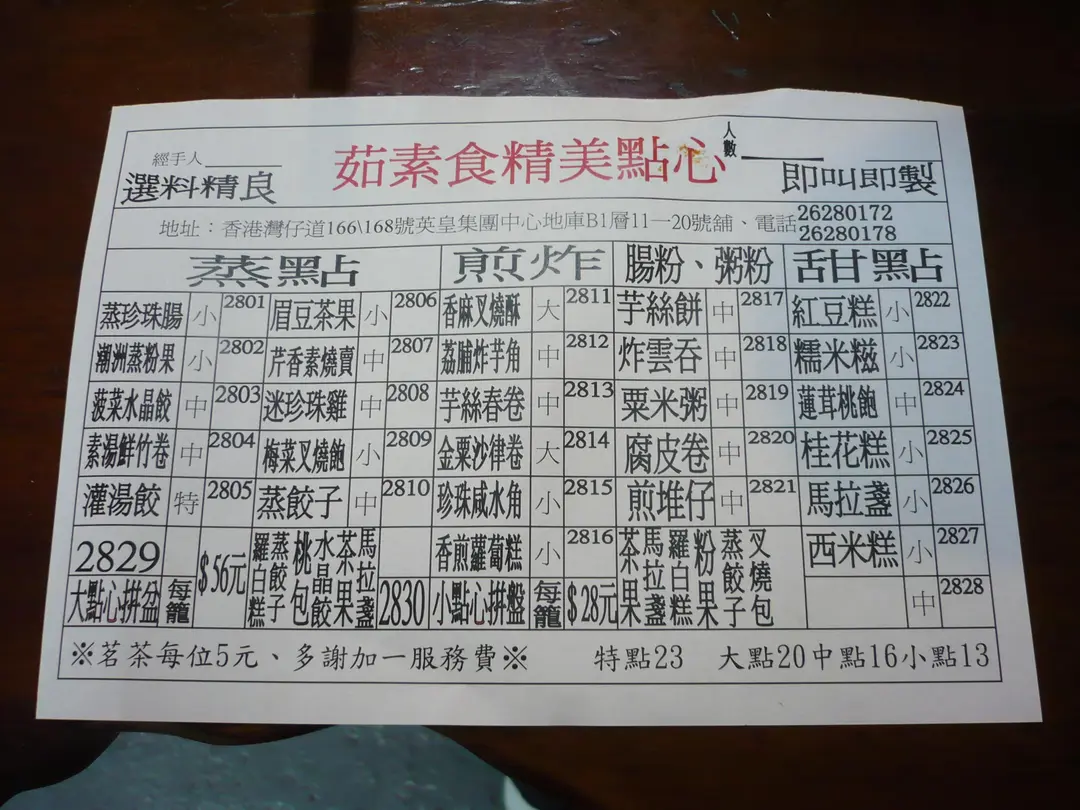 經手人
茹素食精美點心
人數
選料精良
即叫即製
地址：香港灣仔道166\168號英皇集團中心地庫B1層11一20號舖、電話 26280172
26280178
蒸點 煎炸 腸粉、粥粉 甜點
蒸珍珠腸 小 2801 眉豆茶果 小 2806 香麻叉燒酥 大 2811 芋絲餅 中 2817 紅豆糕 小 2822
潮洲蒸粉果 小 2802 芹香素燒賣 中 2807 荔脯炸芋角 中 2812 炸雲吞 中 2818 糯米糍 小 2823
菠菜水晶餃 中 2803 迷珍珠雞 中 2808 芋絲春卷 中 2813 粟米粥 中 2819 蓮茸桃飽 中 2824
素湯鮮竹卷 中 2804 梅菜叉燒飽 小 2809 金粟沙律卷 大 2814 腐皮卷 中 2820 桂花糕 小 2825
灌湯餃 特 2805 蒸餃子 中 2810 珍珠咸水角 小 2815 煎堆仔 中 2821 馬拉盞 小 2826
香煎蘿蔔糕 小 2816 西米糕 小 2827
中 2828
2829 大點心拼盆 每籠 $56元 羅白糕 蒸餃子 桃包 水晶餃 茶果 馬拉盞
2830 小點心拼盤 每籠 $28元 茶果 馬拉盞 羅白糕 粉果 蒸餃子 叉燒包
※茗茶每位5元、多謝加一服務費※ 特點23 大點20中點16小點13